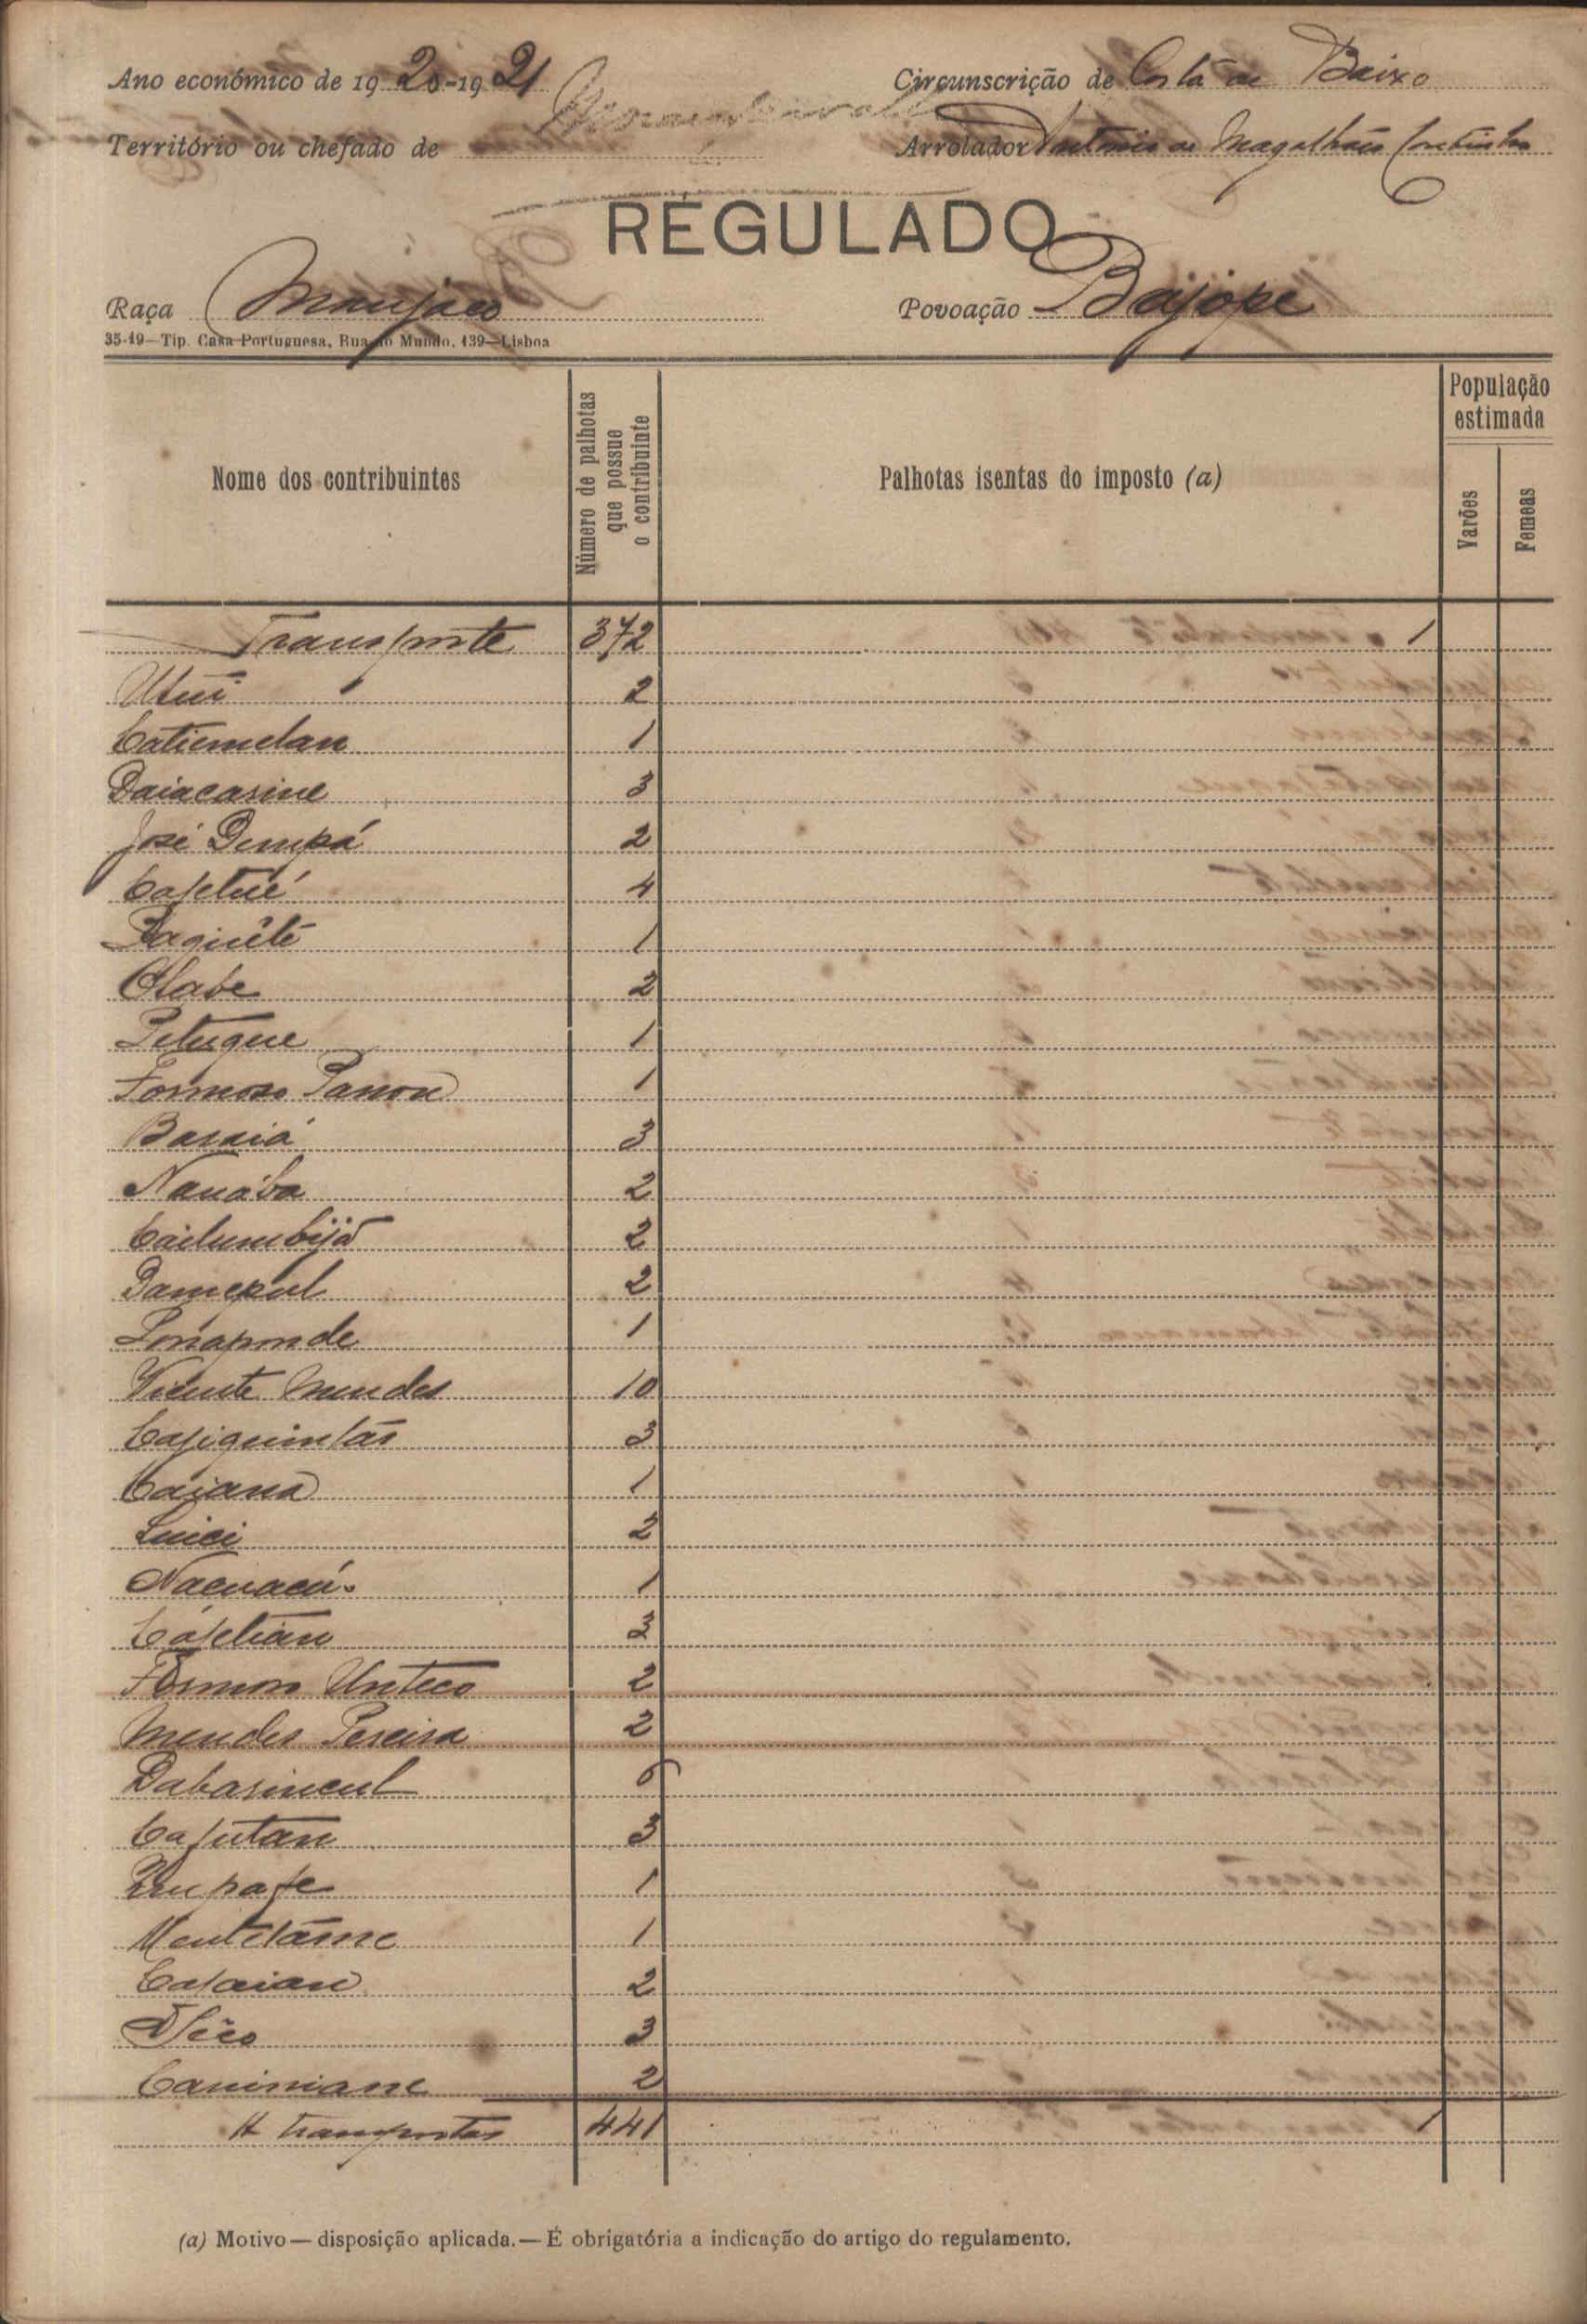 Ano económico de 1920-1921
Circunscrição de Costa de Baixo
Território ou chefado de
Arrolador Antonio de Magalhães Coutinho
REGULADO
Raça Manjaco
Povoação Bajope
35-19—Tip. Casa Portuguesa, Rua do Mundo, 139—Lisboa
Nome dos contribuintes
Número de palhotas que possue o contribuinte
Palhotas isentas do imposto (a)
População estimada
Varões
Femeas
Transporte 372 1
Utui 2
Catiemelan 1
Daiacasine 3
José Dempá 2
Cajetué 4
Baquêlé 1
Olabe 2
Petugue 1
Formoso Panou 1
Basaiá 3
Nauába 2
Cailumbijá 2
Damepul 2
Ponaponde 1
Vicente Mendes 10
3
Caiana 1
Luici 2
Nacuacú 1
3
Formoso Unteco 2
Mendes Pereira 2
Dabasineul 6
Cajutan 3
1
1
Cajaian 2
3
Caniniane 2
A transportar 441 1
(a) Motivo — disposição aplicada. — É obrigatória a indicação do artigo do regulamento.